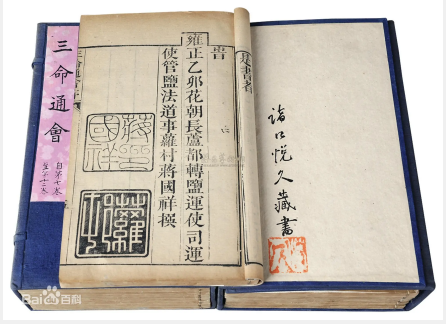 三命通會
自第七卷
至第十二卷
雍正乙卯花朝長蘆都轉鹽運使司運
使管鹽法道事蘿村蔣國祥撰
蔣國祥印
蘿村
悅久藏書
Bai百科